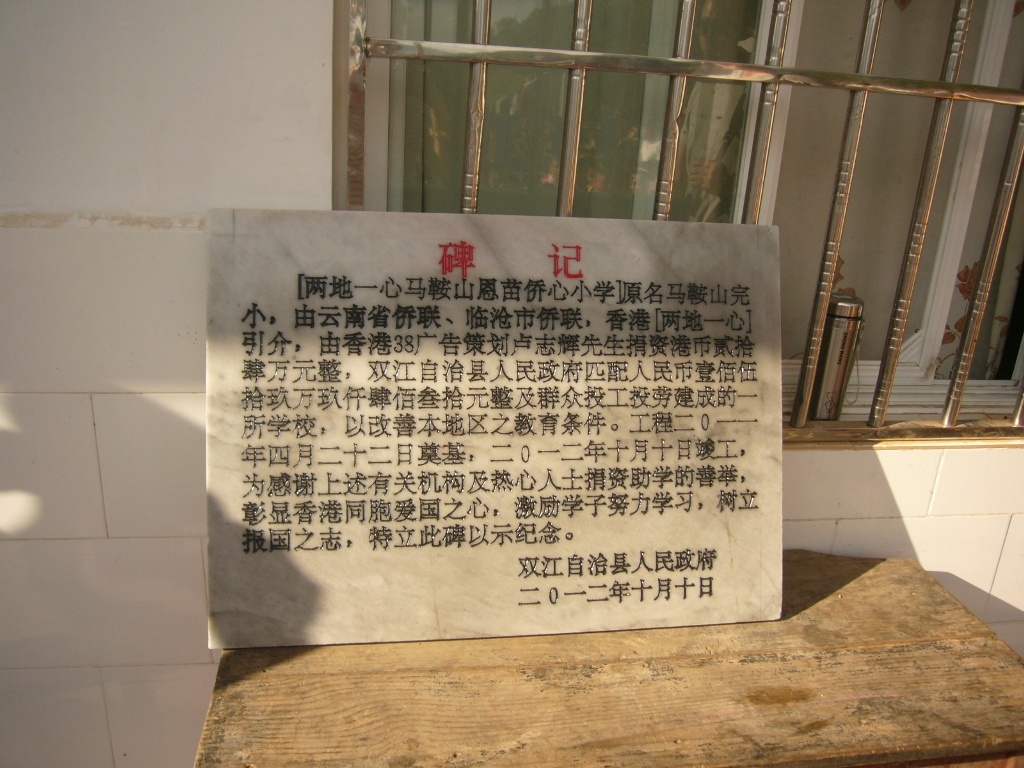 碑 记
[两地一心马鞍山恩苗侨心小学]原名马鞍山完
小，由云南省侨联、临沧市侨联，香港[两地一心]
引介，由香港38广告策划卢志辉先生捐资港币贰拾
肆万元整，双江自治县人民政府匹配人民币壹佰伍
拾玖万玖仟肆佰叁拾元整及群众投工投劳建成的一
所学校，以改善本地区之教育条件。工程二0一一
年四月二十二日奠基，二0一二年十月十日竣工，
为感谢上述有关机构及热心人士捐资助学的善举，
彰显香港同胞爱国之心，激励学子努力学习，树立
报国之志，特立此碑以示纪念。
双江自治县人民政府
二0一二年十月十日